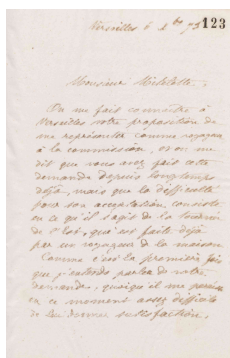 Versailles 6 Xbre 73
123
Monsieur
On me fait connaître à
Versailles votre proposition de
me représenter comme voyageur
à la commission, et on me
dit que vous avez fait cette
demande depuis longtemps
déjà, mais que la difficulté
pour son acceptation, consiste
en ce qu'il s'agit de la tournée
de l'Est, qui est faite déjà
par un voyageur de la maison.
Comme c'est la première fois
que j'entends parler de votre
demande, quoiqu'il me paraisse
en ce moment assez difficile
de lui donner satisfaction.